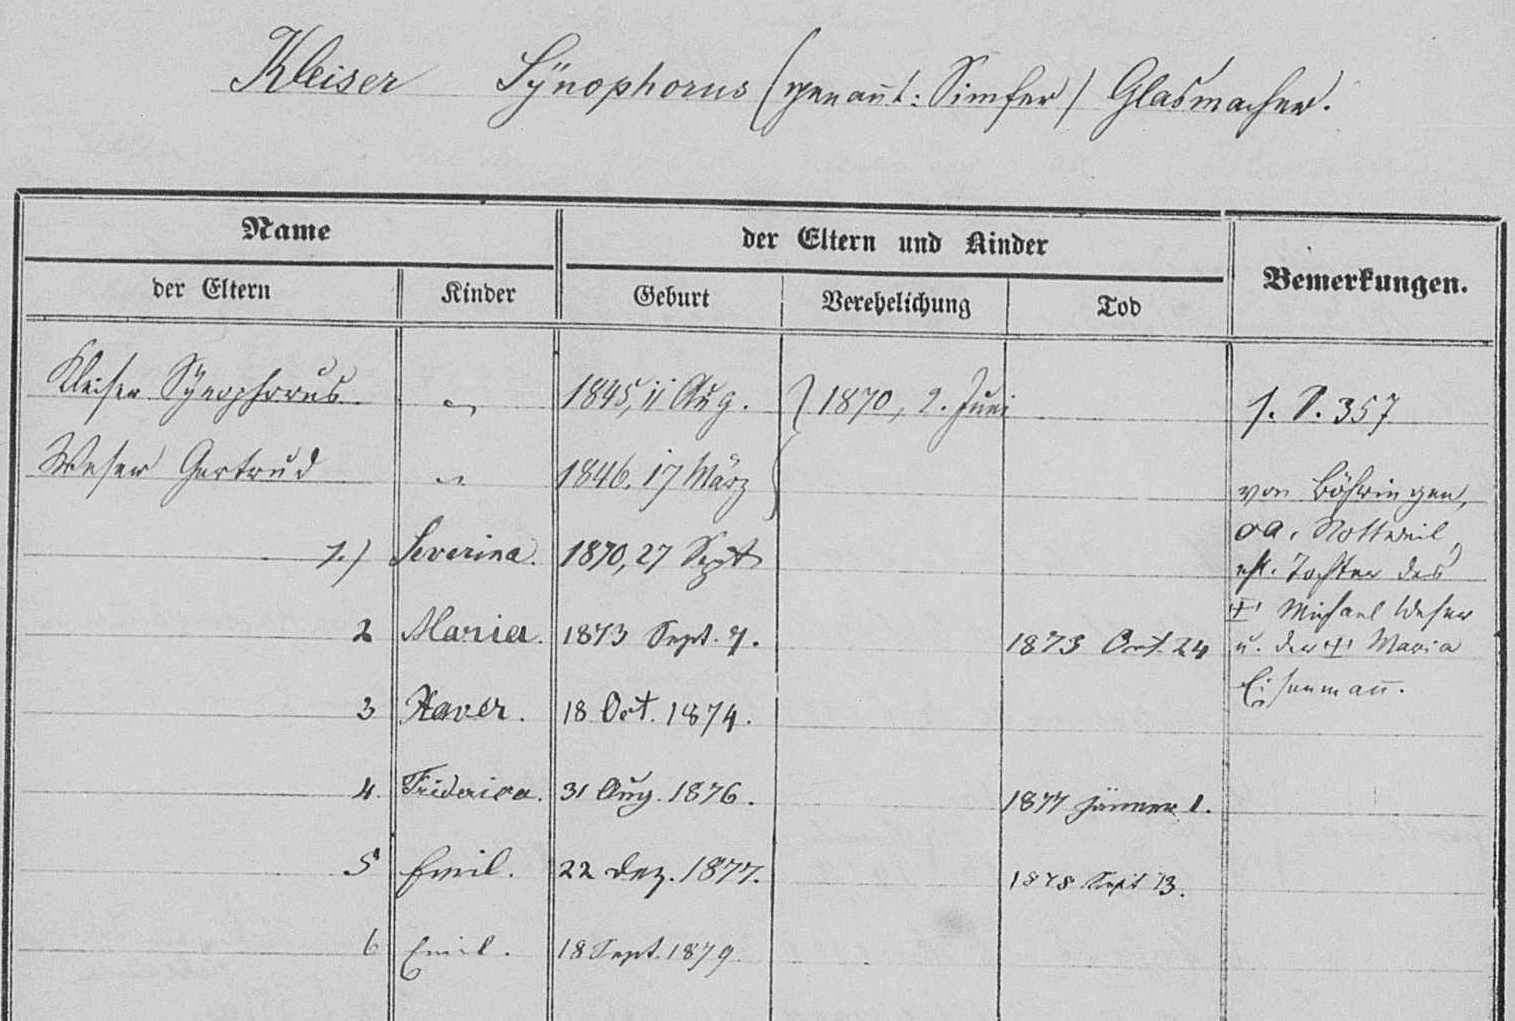 Kleiser Sÿnophorus (genan̄t: Simfer) Glasmacher.
Name der Eltern und Kinder Bemerkungen.
der Eltern Kinder Geburt Verehelichung Tod
Kleiser Sÿnophorus " 1845, 11 Aug. } 1870, 2. Juni s. S. 357
Weser Gertrud " 1846. 17 März von Böhringen,
OA. Rottweil,
1.) Severina. 1870, 27 Sept ehl. Tochter des
† Michael Weser
2 Maria. 1873 Sept. 7. 1873 Oct. 24 u. der † Maria
Eisenman̄.
3 Xaver. 18 Oct. 1874.
4. Friderica. 31 Aug. 1876. 1877 Jänner 1.
5 Emil. 22 Dez. 1877. 1878 Sept 13.
6 Emil. 18 Sept. 1879